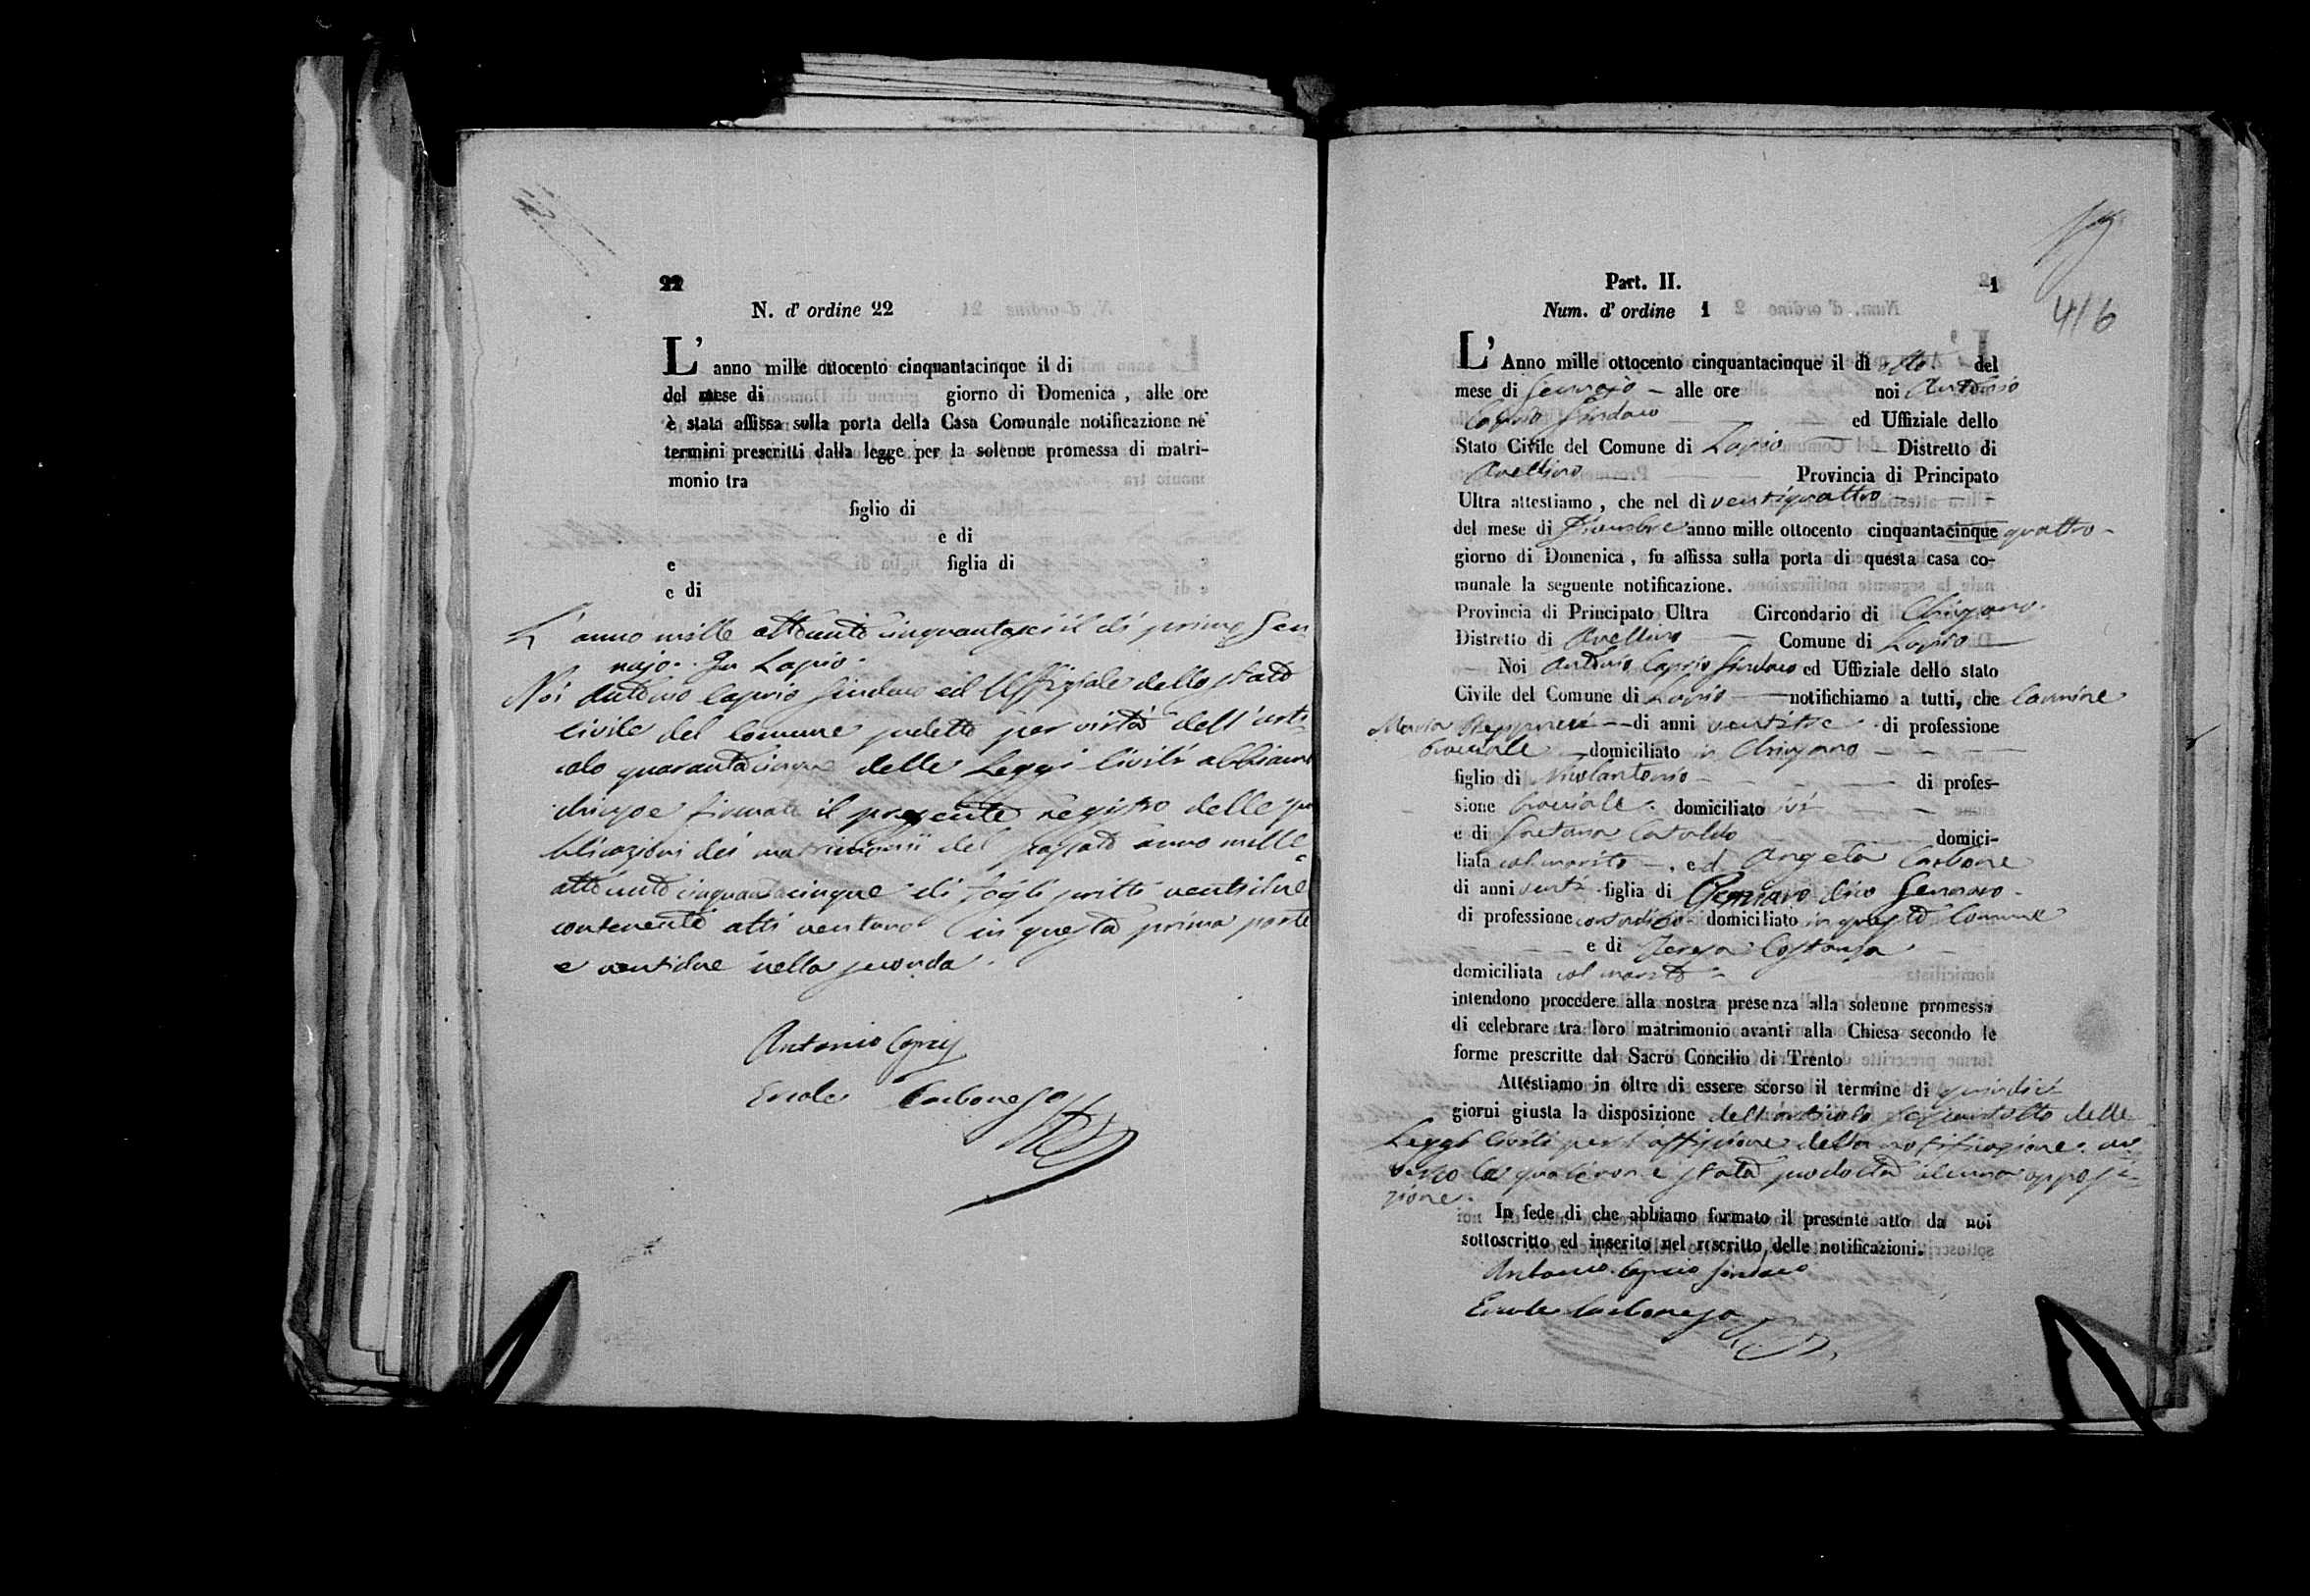 22
N. d' ordine 22
L' anno mille ottocento cinquantacinque il di
del mese di giorno di Domenica , alle ore
è stata affissa sulla porta della Casa Comunale notificazione ne'
termini prescritti dalla legge per la solenne promessa di matri-
monio tra
figlio di
e di
e figlia di
e di
L' anno mille ottocento cinquantasei il dì primo Gen
najo. In Lapio.
Noi Antonio Caprio Sindaco ed Uffiziale dello stato
civile del Comune sudetto per virtù dell' arti
colo quarantacinque delle Leggi Civili abbiamo
chiuso e firmato il presente registro delle pu
blicazioni dei matrimonii del passato anno mille
ottocento cinquantacinque di fogli scritti ventidue
contenente atti ventuno in questa prima parte
e ventidue nella seconda.
Antonio Caprio
Ercole Carbone
Part. II. 1
Num. d' ordine 1
416
L' Anno mille ottocento cinquantacinque il dì otto del
mese di Gennajo – alle ore noi Antonio
Caprio Sindaco ed Uffiziale dello
Stato Civile del Comune di Lapio — Distretto di
Avellino — Provincia di Principato
Ultra attestiamo , che nel dì ventiquattro - - -
del mese di Dicembre anno mille ottocento cinquantacinque quattro -
giorno di Domenica , fu affissa sulla porta di questa casa co-
munale la seguente notificazione.
Provincia di Principato Ultra Circondario di Chiusano.
Distretto di Avellino — Comune di Lapio —
Noi Antonio Caprio Sindaco ed Uffiziale dello stato
Civile del Comune di Lapio — notifichiamo a tutti, che Carmine
Maria — di anni ventitre . di professione
bracciale — domiciliato in Chiusano - - —
figlio di Nicolantonio - — di profes-
sione bracciale . domiciliato ivi —
e di Gaetana Cataldo — domici-
liata col marito — , e d Angela Carbone
di anni venti figlia di dico Gennaro -
di professione contadino - domiciliato in questo Comune
— e di Teresa Costanza -
domiciliata col marito -
intendono procedere alla nostra presenza alla solenne promessa
di celebrare tra loro matrimonio avanti alla Chiesa secondo le
forme prescritte dal Sacro Concilio di Trento
Attestiamo in oltre di essere scorso il termine di quindici
giorni giusta la disposizione dell' articolo sessantotto delle
Leggi Civili per l' affissione della notificazione. av
verso la quale non è stata prodotta alcuna opposi-
zione.
In fede di che abbiamo formato il presente atto da noi
sottoscritto ed inserito nel rescritto delle notificazioni.
Antonio Caprio Sindaco
Ercole Carbone